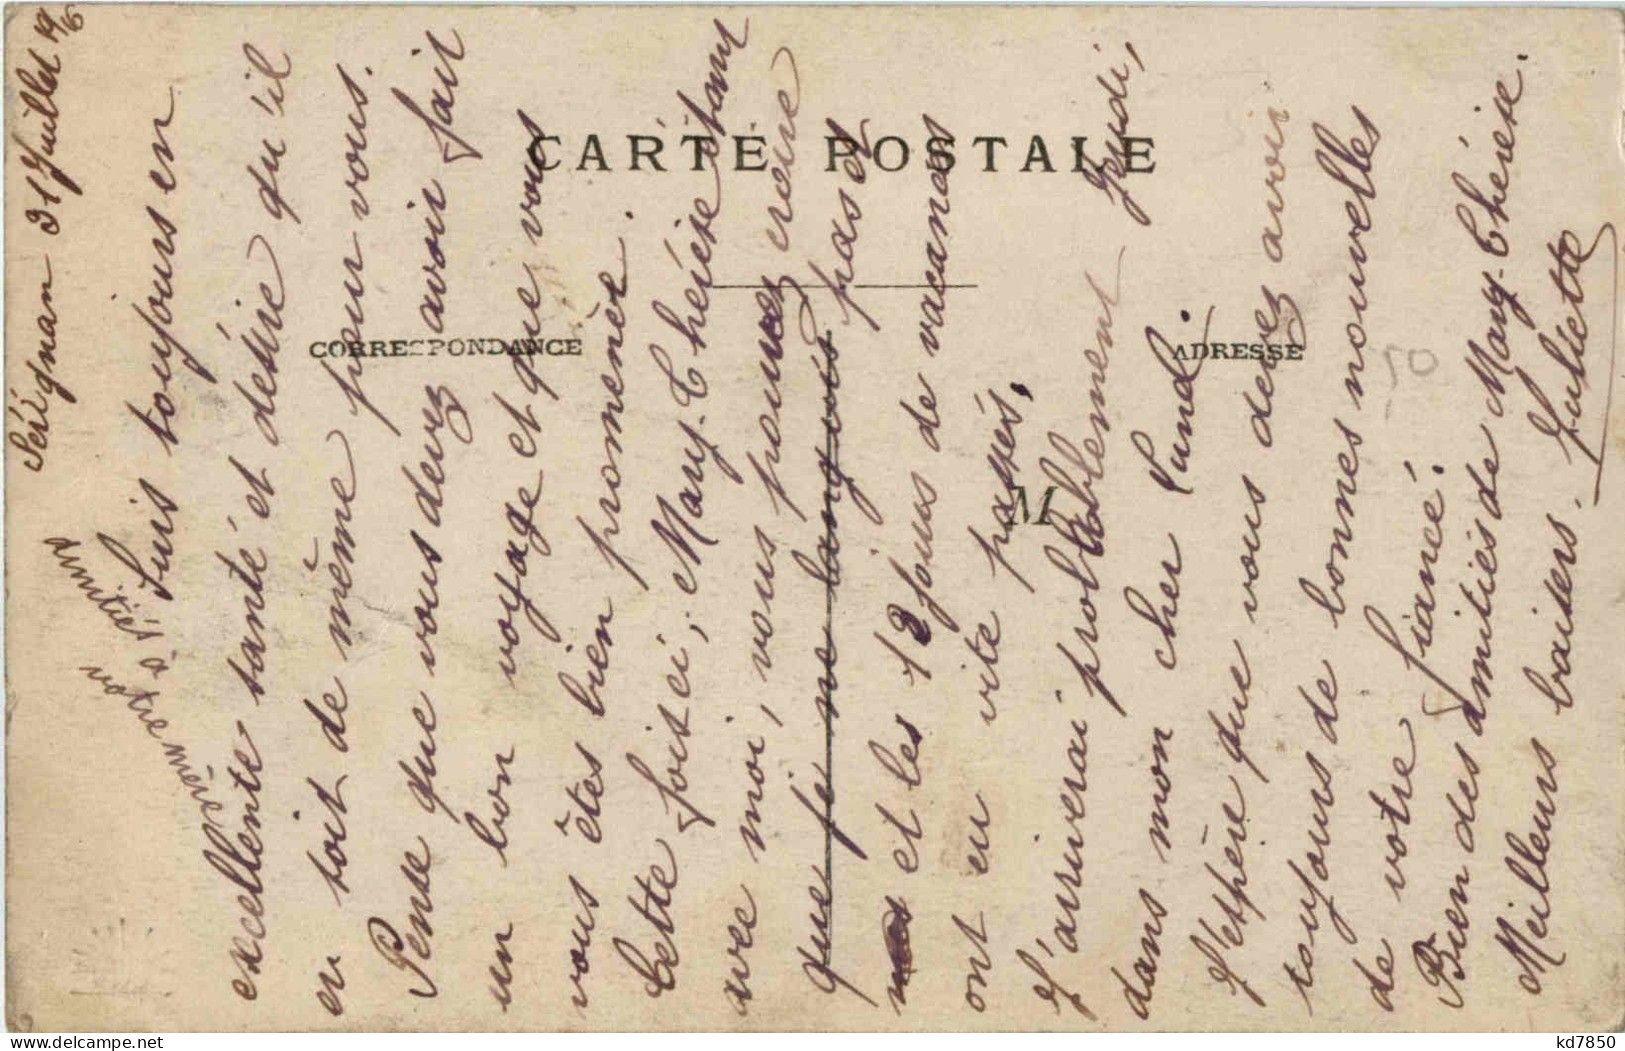 Sérignan 31 Juillet 19/6
CARTE POSTALE
CORRESPONDANCE
ADRESSE
M
Suis toujours en
excellente santé et désire qu'il
en soit de même pour vous.
Pense que vous devez avoir fait
un bon voyage et que vous
vous êtes bien promenée.
Cette fois ci, Mary-Thérèse étant
avec moi, vous pouvez croire
que je ne languis pas et
et les 12 jours de vacances
ont eu vite passés.
J'arriverai probablement Jeudi,
dans mon cher Lunel.
J'espère que vous devez avoir
toujours de bonnes nouvelles
de votre fiancé.
Bien des amitiés de Mary-Thérèse.
Meilleurs baisers. Juliette
amitiés à
50
kd7850